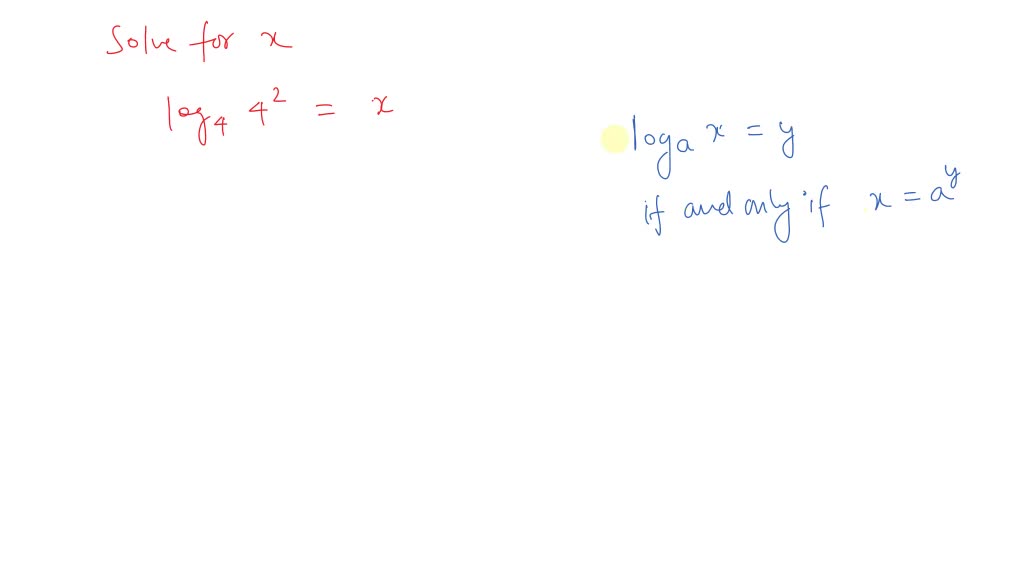 Solve for x
log₄ 4² = x
logₐ x = y
if and only if x = aʸ